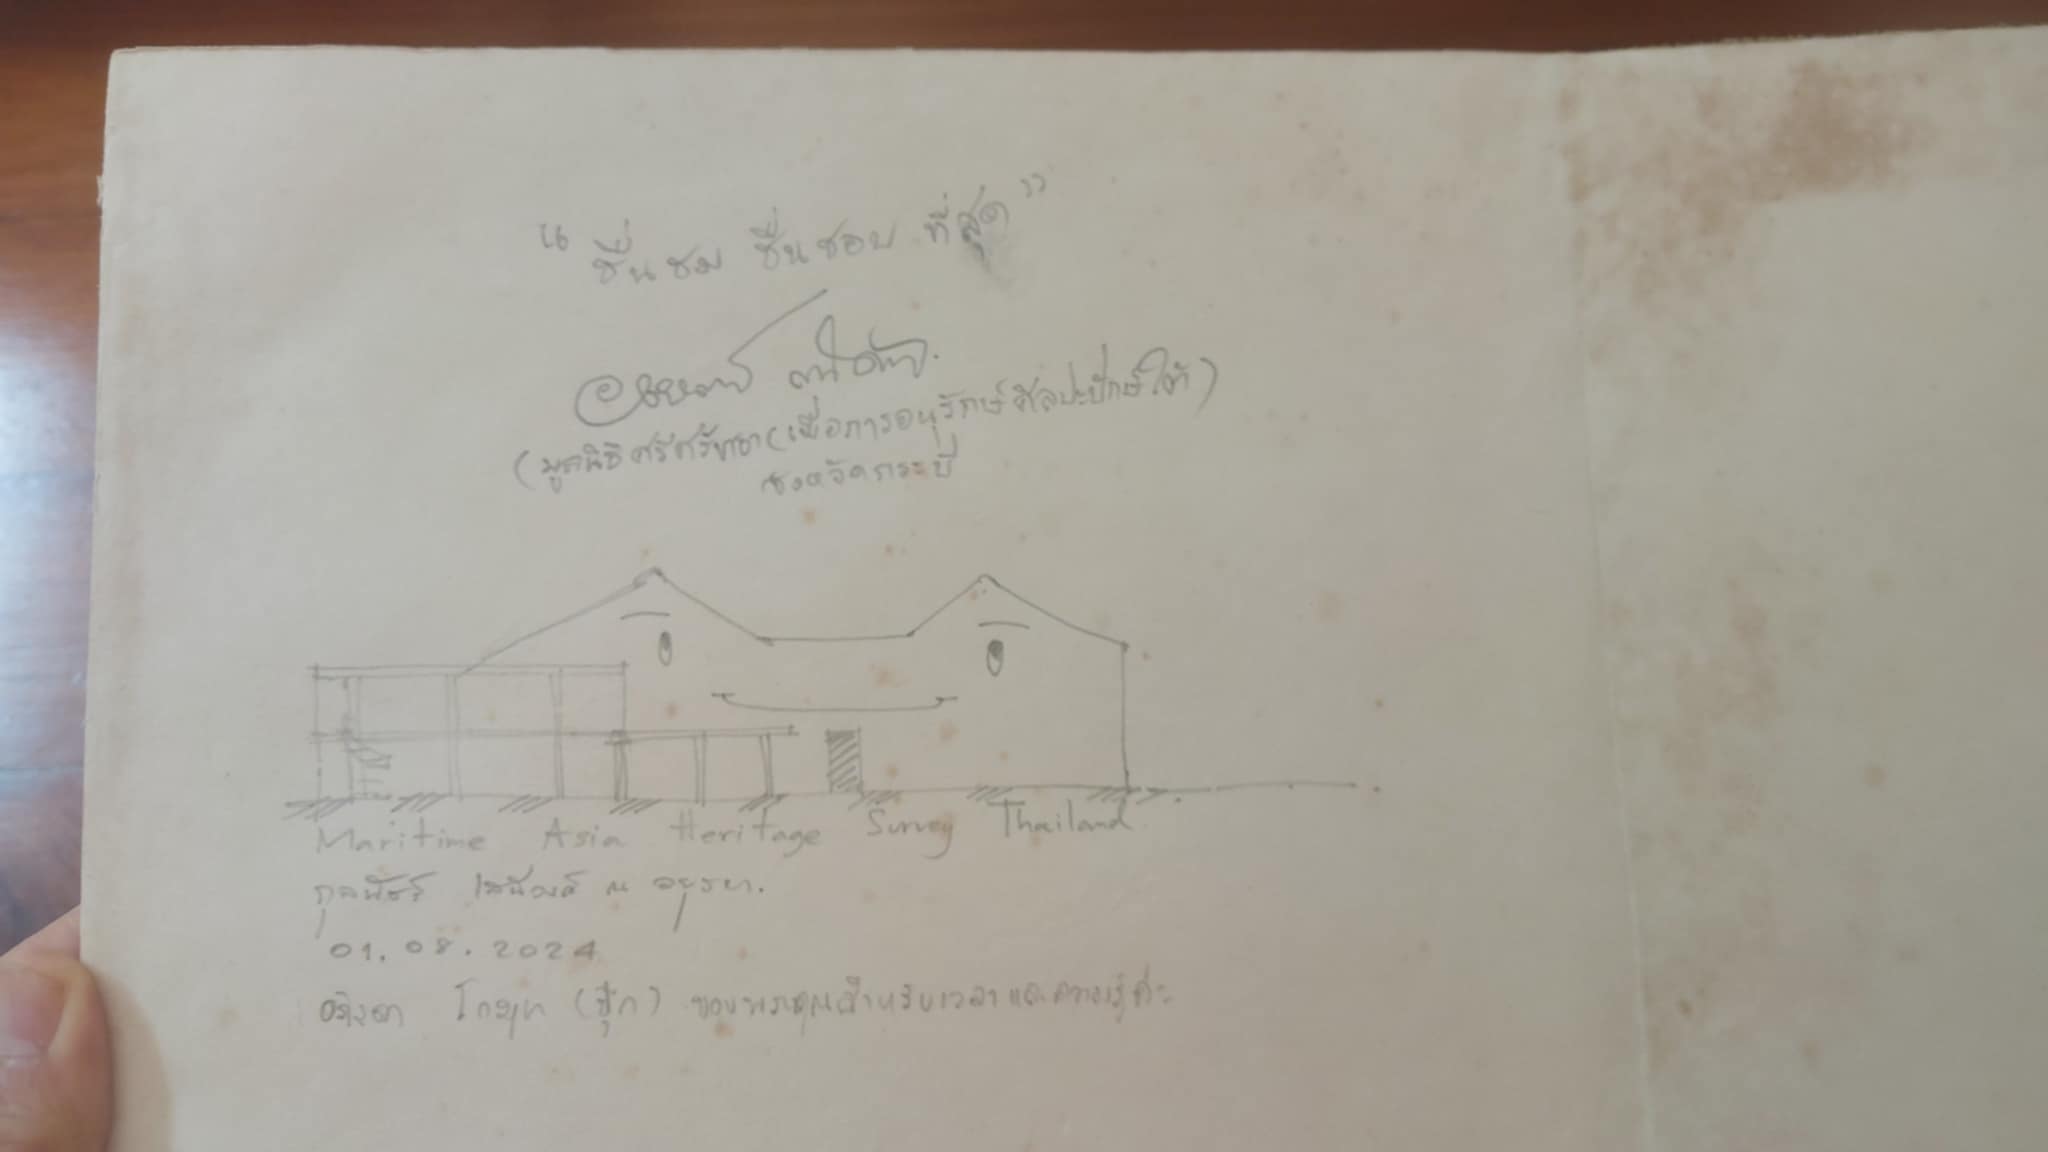 “ ชื่นชม ชื่นชอบ ที่สุด ”
(มูลนิธิศรีศรัทธา (เพื่อการอนุรักษ์ศิลปะปักษ์ใต้)
จังหวัดกระบี่
Maritime Asia Heritage Survey Thailand.
กุลพัชร์ เสนีวงศ์ ณ อยุธยา.
01.08.2024
(ชุ้ก) ขอบพระคุณสำหรับเวลาและความรู้ค่ะ